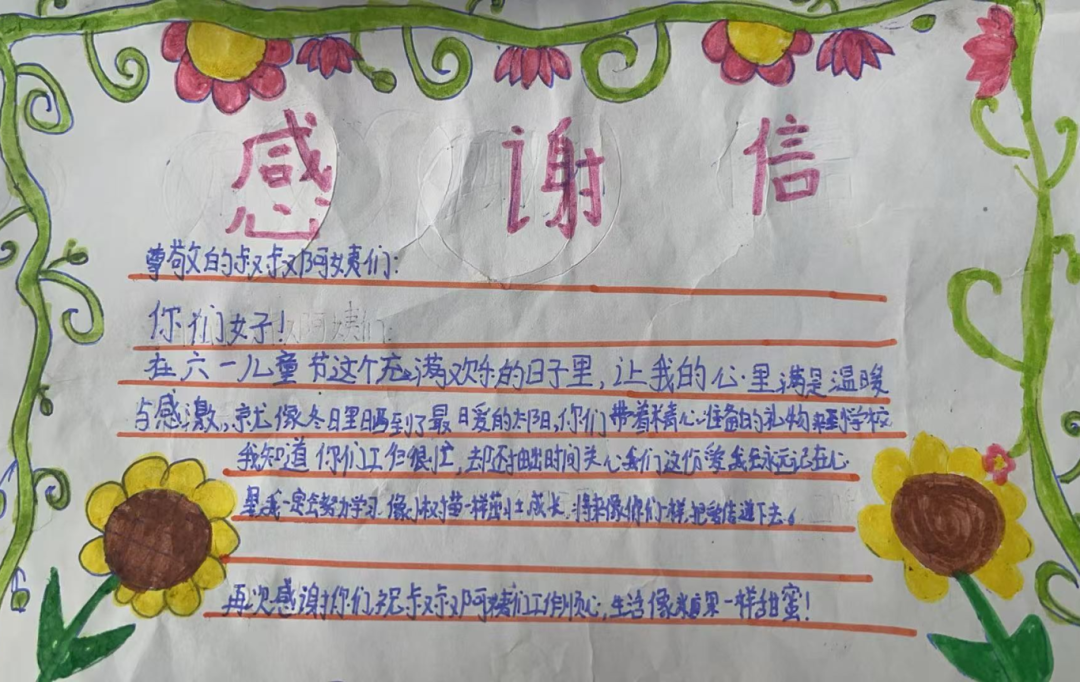 感谢信
尊敬的叔叔阿姨们:
你们好!
在六一儿童节这个充满欢乐的日子里,让我的心里满是温暖
与感激,就像冬日里晒到了最暖的太阳,你们带着精心准备的礼物来到学校
我知道你们工作很忙,却还抽出时间关心我们这份爱我会永远记在心
里我一定会努力学习,像小树苗一样茁壮成长,将来像你们一样把爱传递下去。
再次感谢你们,祝叔叔阿姨们工作顺心,生活像糖果一样甜蜜!